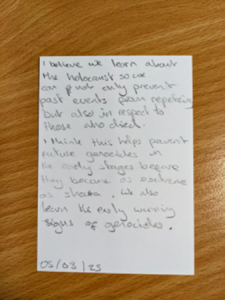 I believe we learn about
the Holocaust so we
can not only prevent
past events from repeating
but also in respect to
those who died.
I think this helps prevent
future genocides in
the early stages before
they become as extreme
as shoah. We also
learn the early warning
signs of genocides.
05/03/23